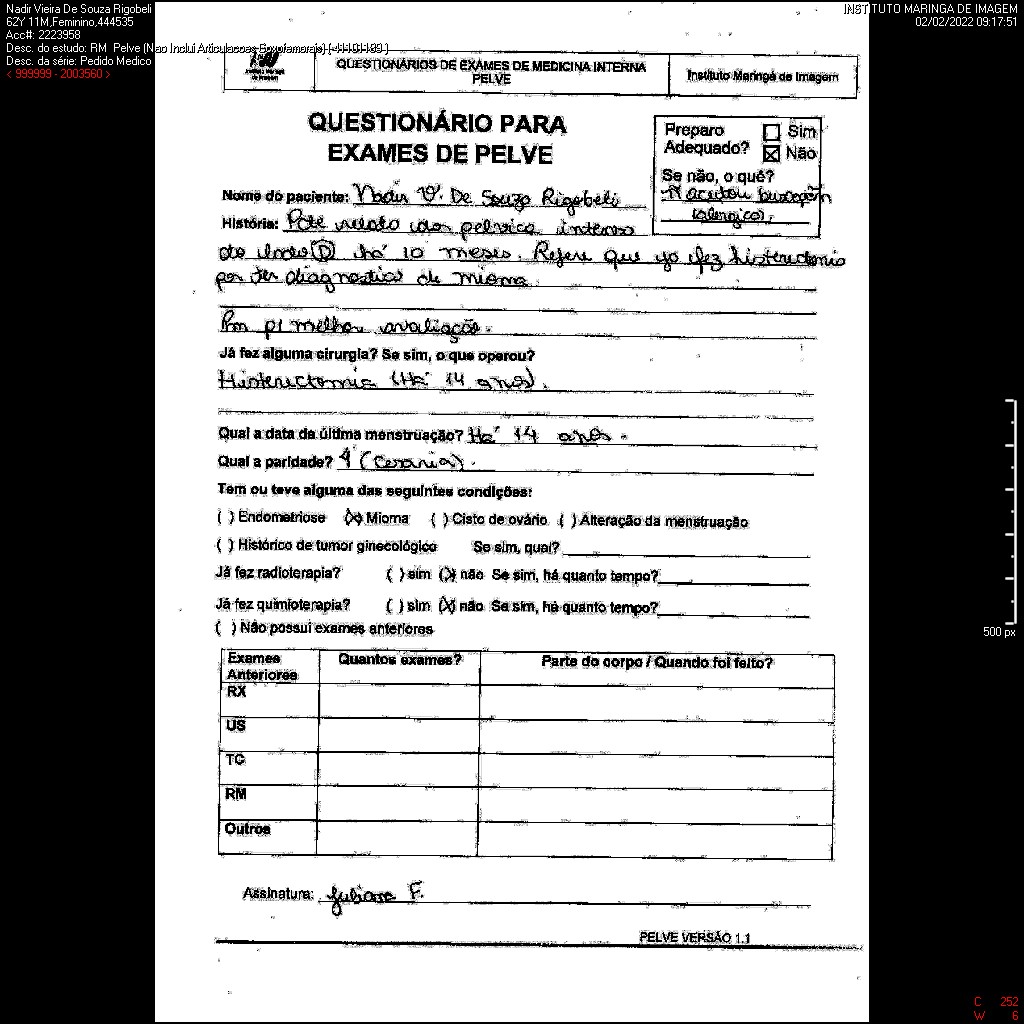 Nadir Vieira De Souza Rigobeli
62Y 11M,Feminino,444535
Acc#: 2223958
Desc. do estudo: RM Pelve (Nao Inclui Articulacoes Coxofemorais) [-41101189-]
Desc. da série: Pedido Medico
< 999999 - 2003560 >
INSTITUTO MARINGA DE IMAGEM
02/02/2022 09:17:51
QUESTIONÁRIOS DE EXAMES DE MEDICINA INTERNA
PELVE
Instituto Maringá de Imagem
QUESTIONÁRIO PARA
EXAMES DE PELVE
Preparo Adequado?
Sim
Não
Se não, o quê?
Ñ aceitou buscopan
(alérgica).
Nome do paciente: Nadir V. De Souza Rigobeli
História: Pcte relata dor pélvica intensa
do lado (D) há 10 meses. Refere que ja fez histerectomia
por ter diagnostico de mioma.
Rm p/ melhor avaliação.
Já fez alguma cirurgia? Se sim, o que operou?
Histerectomia (Há 14 anos).
Qual a data da última menstruação? Há 14 anos.
Qual a paridade? (Cesaria).
Tem ou teve alguma das seguintes condições:
( ) Endometriose (X) Mioma ( ) Cisto de ovário ( ) Alteração da menstruação
( ) Histórico de tumor ginecológico Se sim, qual?
Já fez radioterapia? ( ) sim (X) não Se sim, há quanto tempo?
Já fez quimioterapia? ( ) sim (X) não Se sim, há quanto tempo?
( ) Não possui exames anteriores
Exames Anteriores
Quantos exames?
Parte do corpo / Quando foi feito?
RX
US
TC
RM
Outros
Assinatura: Juliana F.
PELVE VERSÃO 1.1
500 px
C 252
W 6